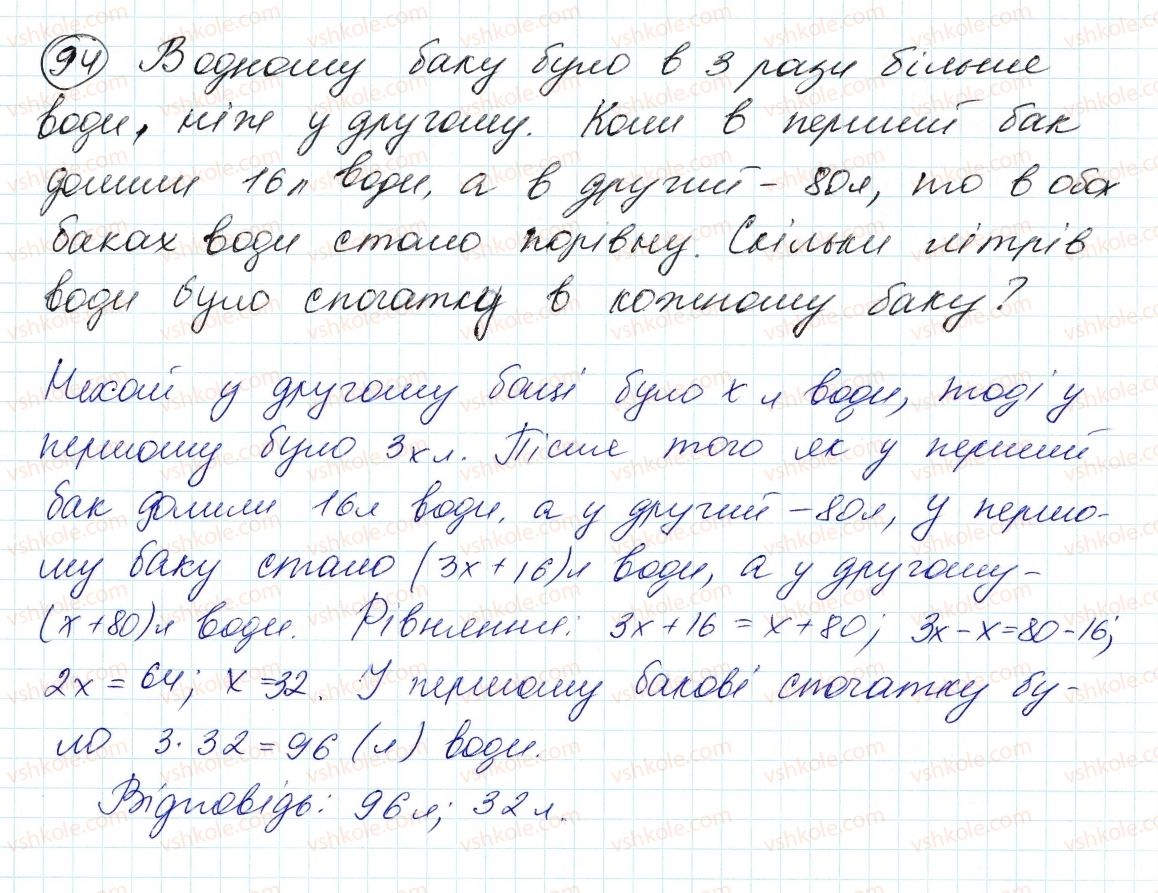 94 В одному баку було в 3 рази більше
води, ніж у другому. Коли в перший бак
долили 16л води, а в другий - 80л, то в обох
баках води стало порівну. Скільки літрів
води було спочатку в кожному баку?
Нехай у другому баці було х л води, тоді у
першому було 3х л. Після того як у перший
бак долили 16л води, а у другий - 80л, у першо-
му баку стало (3х+16)л води, а у другому -
(х+80)л води. Рівняння: 3х+16=х+80; 3х-х=80-16;
2х=64; х=32. У першому бакові спочатку бу-
ло 3·32=96 (л) води.
Відповідь: 96л; 32л.